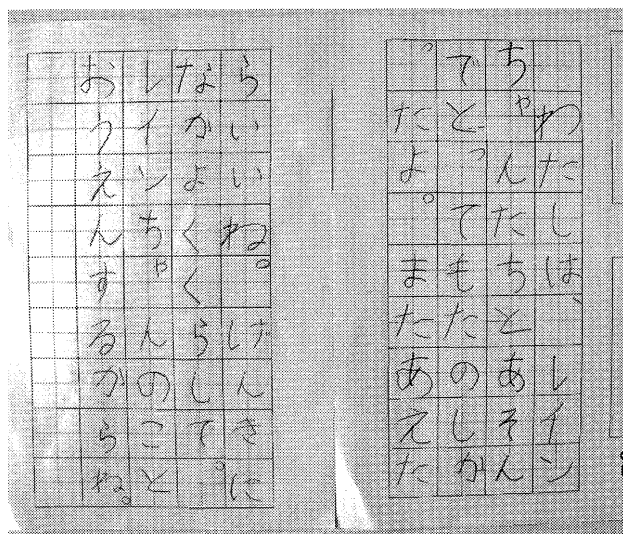 わたしは、レイン
ちゃんたちとあそん
でとってもたのしか
ったよ。またあえた
らいいね。げんきに
なかよくくらして。
レインちゃんのこと
おうえんするからね。